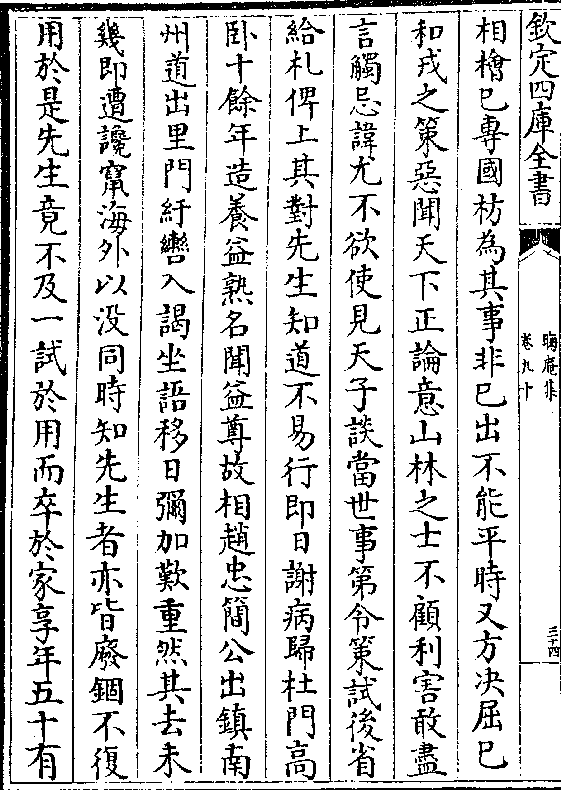 欽定四庫全書
晦庵集
卷九十
三十四
相檜已專國枋為其事非已出不能平時又方決屈已
和戎之策惡聞天下正論意山林之士不顧利害敢盡
言觸忌諱尤不欲使見天子談當世事第令策試後省
給札俾上其對先生知道不易行即日謝病歸杜門高
卧十餘年造養益熟名聞益尊故相趙忠簡公出鎮南
州道出里門紆轡入謁坐語移日彌加歎重然其去未
幾即遭讒竄海外以没同時知先生者亦皆廢錮不復
用於是先生竟不及一試於用而卒於家享年五十有